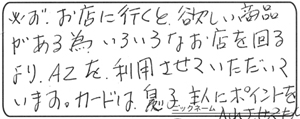 必ず、お店に行くと、欲しい商品
がある為、いろいろなお店を回る
より、AZを、利用させていただいて
います。カードは、主人にポイントを
ニックネーム